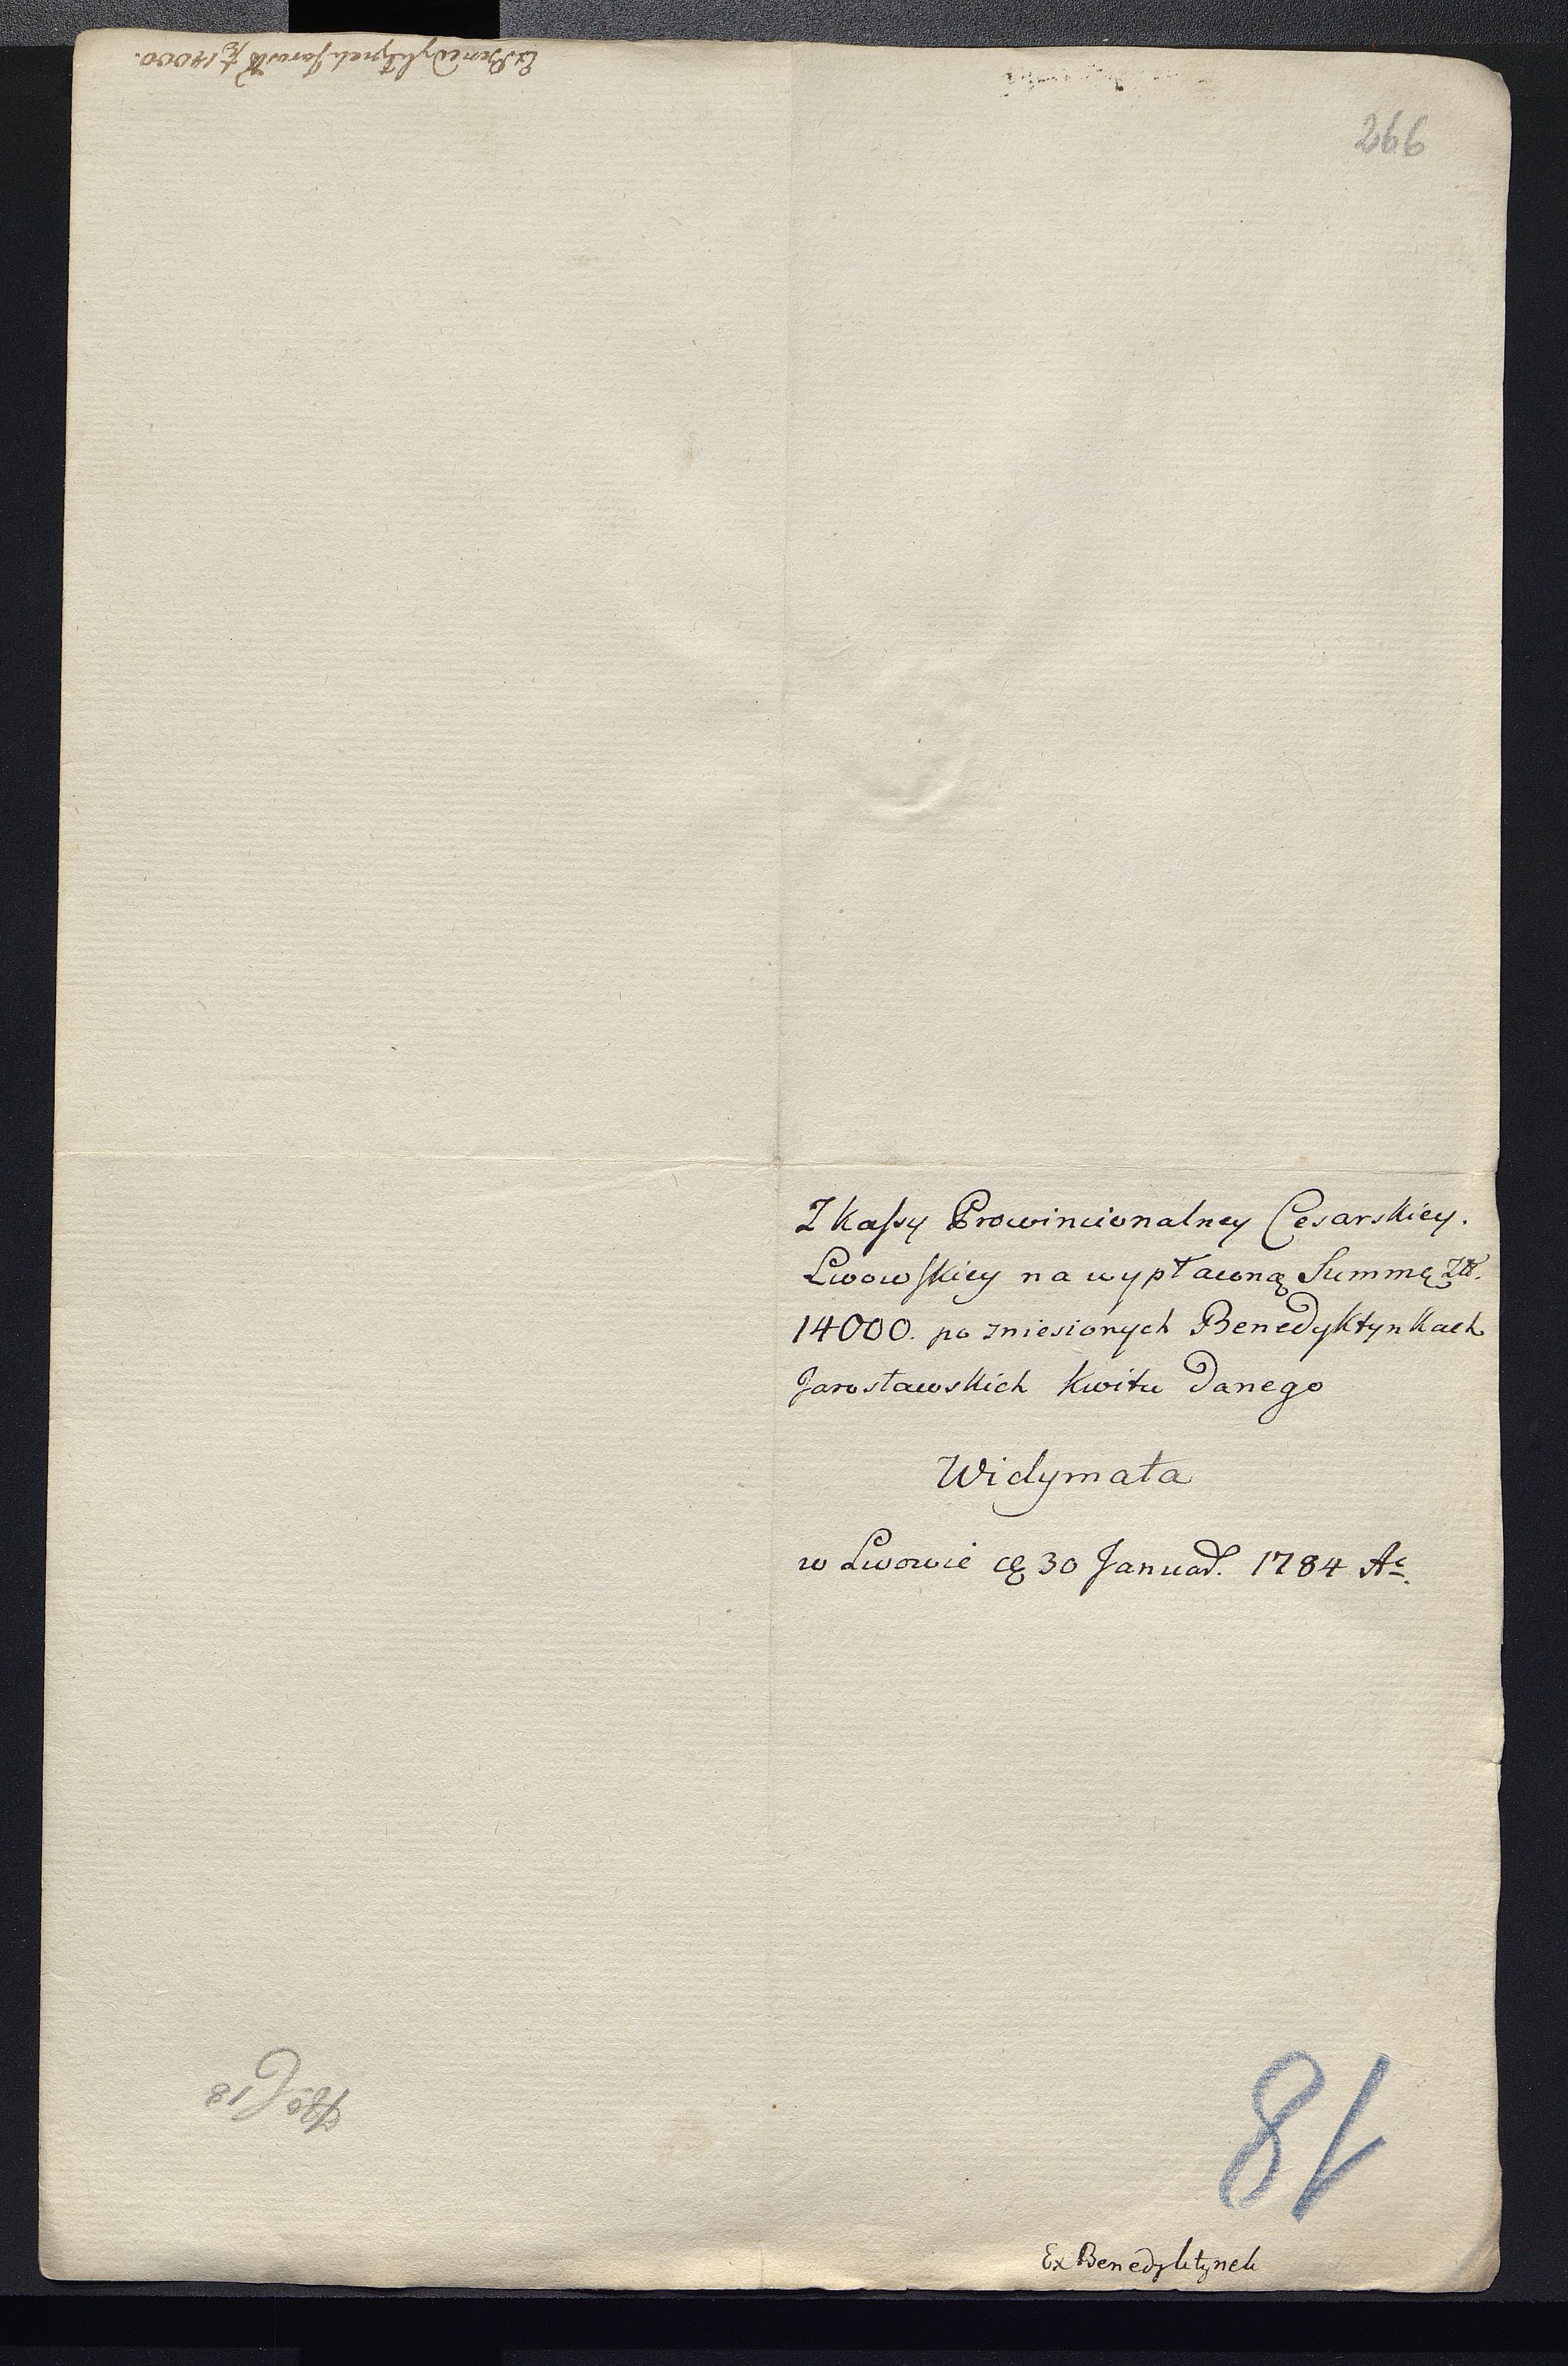 Ex Benedyktynek Jarosł zł 14000.
266
Z kassy Prowincionalney Cesarskiey.
Lwowskiey na wypłaconą Summę Zł.
14000. po zniesionych Benedyktynkach
Jarosławskich kwitu danego
Widymata
w Lwowie 30 Januar. 1784 Ao.
18
81
Ex Benedyktynek